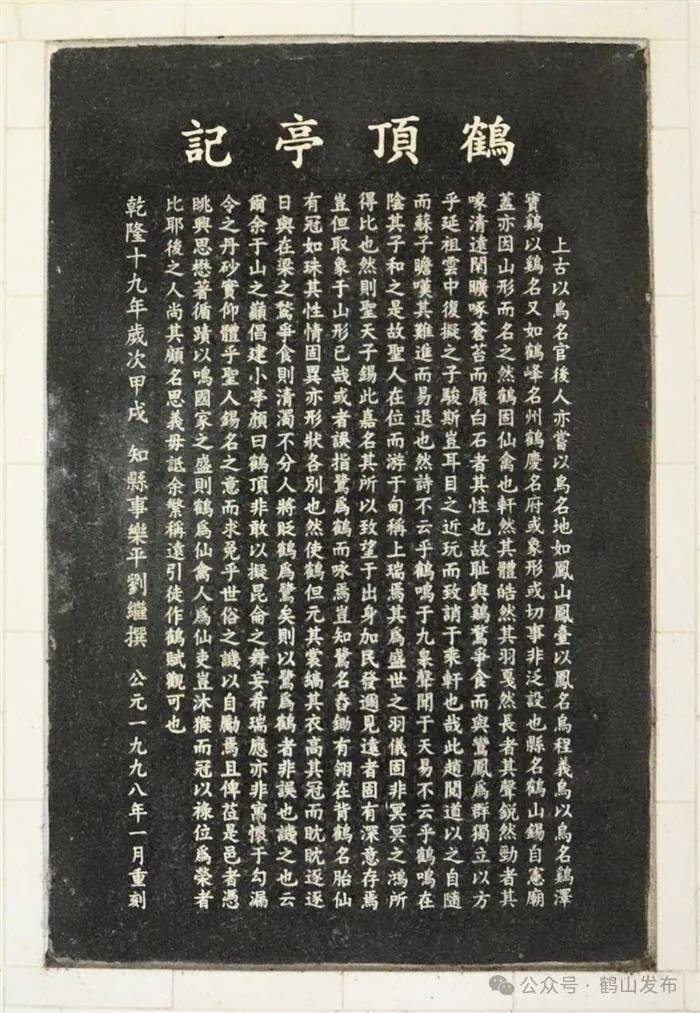 鶴頂亭記
上古以鳥名官後人亦嘗以鳥名地如鳳山鳳臺以鳳名烏程義烏以烏名鷄澤
寶鷄以鷄名又如鶴峰名州鶴慶名府或象形或切事非泛設也縣名鶴山錫自憲廟
蓋亦因山形而名之然鶴固仙禽也軒然其體皓然其羽戛然長者其聲銳然勁者其
喙清遠閑曠啄蒼苔而履白石者其性也故耻與鷄鶩爭食而與鸞鳳爲群獨立以方
乎延祖雲中復擬之子駿斯豈耳目之近玩而致誚于乘軒也哉此趙閱道以之自隨
而蘇子瞻嘆其難進而易退也然詩不云乎鶴鳴于九皋聲聞于天易不云乎鶴鳴在
陰其子和之是故聖人在位而游于甸稱上瑞焉其爲盛世之羽儀固非冥冥之鴻所
得比也然則聖天子錫此嘉名其所以致望于出身加民發邇見遠者固有深意存焉
豈但取象于山形已哉或者誤指鷺爲鶴而咏焉豈知鷺名舂鋤有翎在背鶴名胎仙
有冠如珠其性情固異亦形狀各別也然使鶴但元其裳縞其衣高其冠而眈眈逐逐
日與在梁之鶖爭食則清濁不分人將貶鶴爲鷺矣則以鷺爲鶴者非誤也譏之也云
爾余于山之巔倡建小亭顏曰鶴頂非敢以擬昆侖之舞妄希瑞應亦非寓懷于勾漏
令之丹砂實仰體乎聖人錫名之意而求免乎世俗之譏以自勵焉且俾莅是邑者憑
眺興思懋著循蹟以鳴國家之盛則鶴爲仙禽人爲仙吏豈沐猴而冠以祿位爲榮者
比耶後之人尚其顧名思義毋詆余繁稱遠引徒作鶴賦觀可也
乾隆十九年歲次甲戌 知縣事樂平劉繼撰 公元一九九八年一月重刻
公众号·鹤山发布